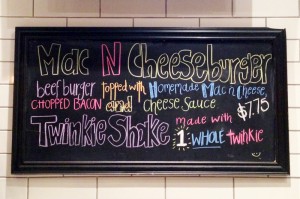 Mac N Cheeseburger
beef burger topped with Homemade Mac n Cheese,
CHOPPED BACON and Cheese Sauce $7.75
Twinkie Shake made with
1 WHOLE twinkie